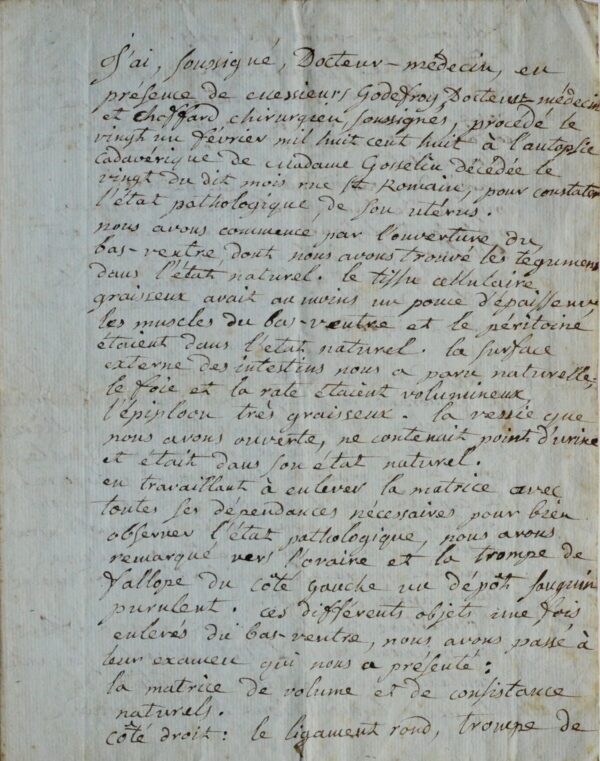 J'ai, soussigné, Docteur-médecin, en
présence de messieurs Godefroy, Docteur-médecin
et Choffard chirurgien soussignés, procédé le
vingt un février mil huit cent huit à l'autopsie
cadaverique de madame Gosselin décédée le
vingt du dit mois rue St Romain, pour constater
l'état pathologique, de son utérus.
nous avons commencé par l'ouverture du
bas-ventre, dont nous avons trouvé les tegumens
dans l'état naturel. le tissu cellulaire
graisseux avait au moins un pouce d'épaisseur,
les muscles du bas-ventre et le péritoine
étaient dans l'état naturel. la surface
externe des intestins nous a paru naturelle,
le foie et la rate étaient volumineux,
l'épiploon très graisseux. la vessie que
nous avons ouverte, ne contenait point d'urine
et était dans son état naturel.
en travaillant à enlever la matrice avec
toutes ses dépendances nécessaires pour bien
observer l'état pathologique, nous avons
remarqué vers l'ovaire et la trompe de
fallope du côté gauche un dépôt sanguin
purulent. ces différents objets une fois
enlevés du bas-ventre, nous avons passé à
leur examen qui nous a présenté :
la matrice de volume et de consistance
naturels.
côté droit : le ligament rond, trompe de